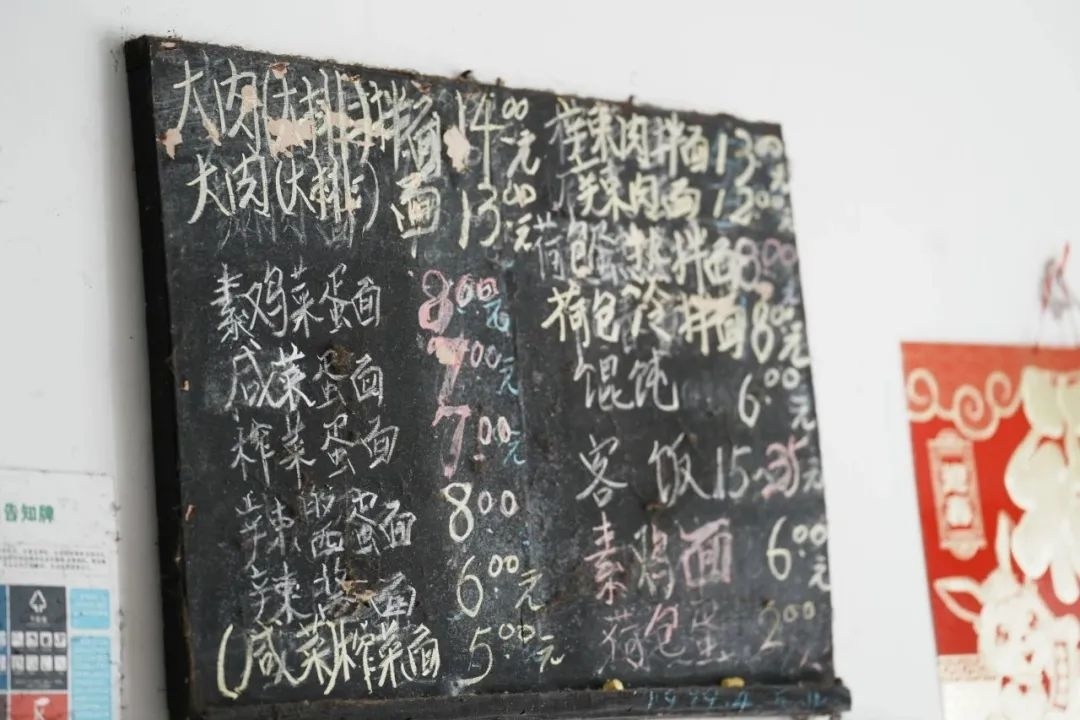 大肉(大排)拌面 14.00元
大肉(大排)面 13.00元
素鸡菜蛋面 8.00元
咸菜蛋面 7.00元
榨菜蛋面 7.00元
辣 蛋面 8.00
辣 面 6.00元
(咸菜)榨菜面 5.00元
辣肉拌面 13.00元
辣肉面 12.00元
荷包蛋热拌面 8.00元
荷包冷拌面 8.00元
馄饨 6.00元
客饭 15-35元
素鸡面 6.00元
荷包蛋 2.00
告知牌